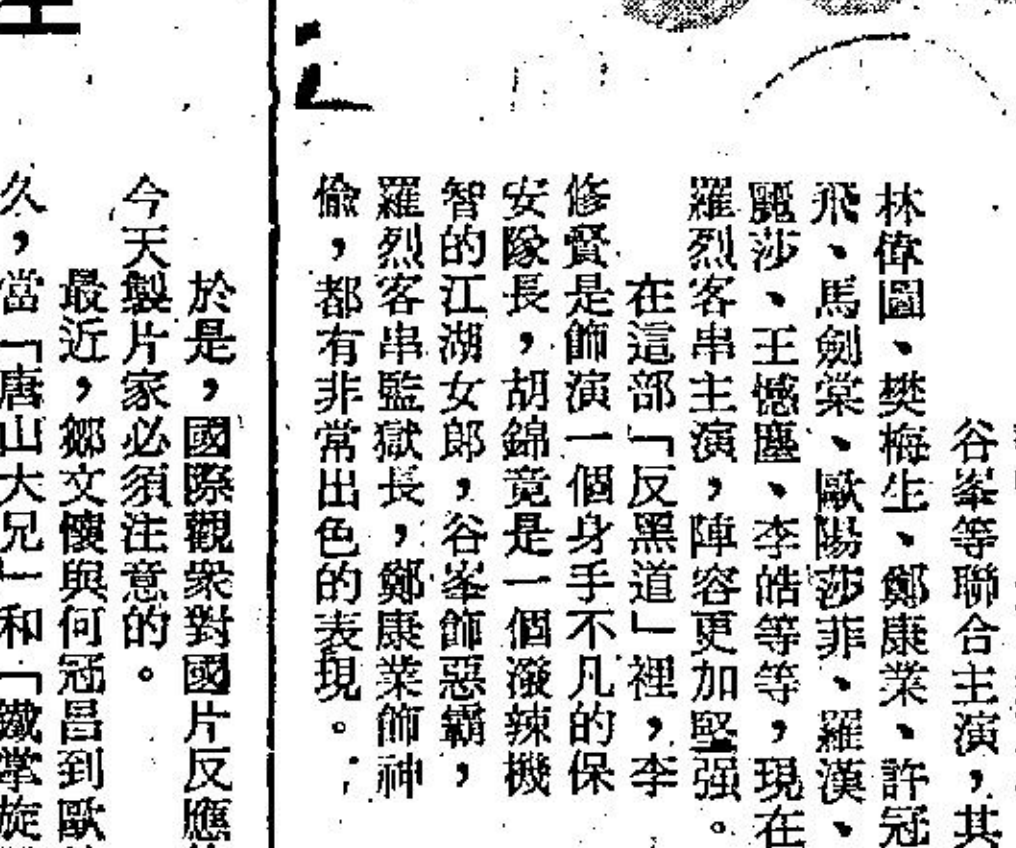 谷峯等聯合主演，其
林偉圖、樊梅生、鄭康業、許冠
飛、馬劍棠、歐陽莎菲、羅漢、
麗莎、王憾塵、李皓等等，現在
羅烈客串主演，陣容更加堅强。
在這部「反黑道」裡，李
修賢是飾演一個身手不凡的保
安隊長，胡錦竟是一個潑辣機
智的江湖女郎，谷峯飾惡霸，
羅烈客串監獄長，鄭康業飾神
偸，都有非常出色的表現。
於是，國際觀衆對國片反應
今天製片家必須注意的。
最近，鄒文懷與何冠昌到歐
久，當「唐山大兄」和「鐵掌旋